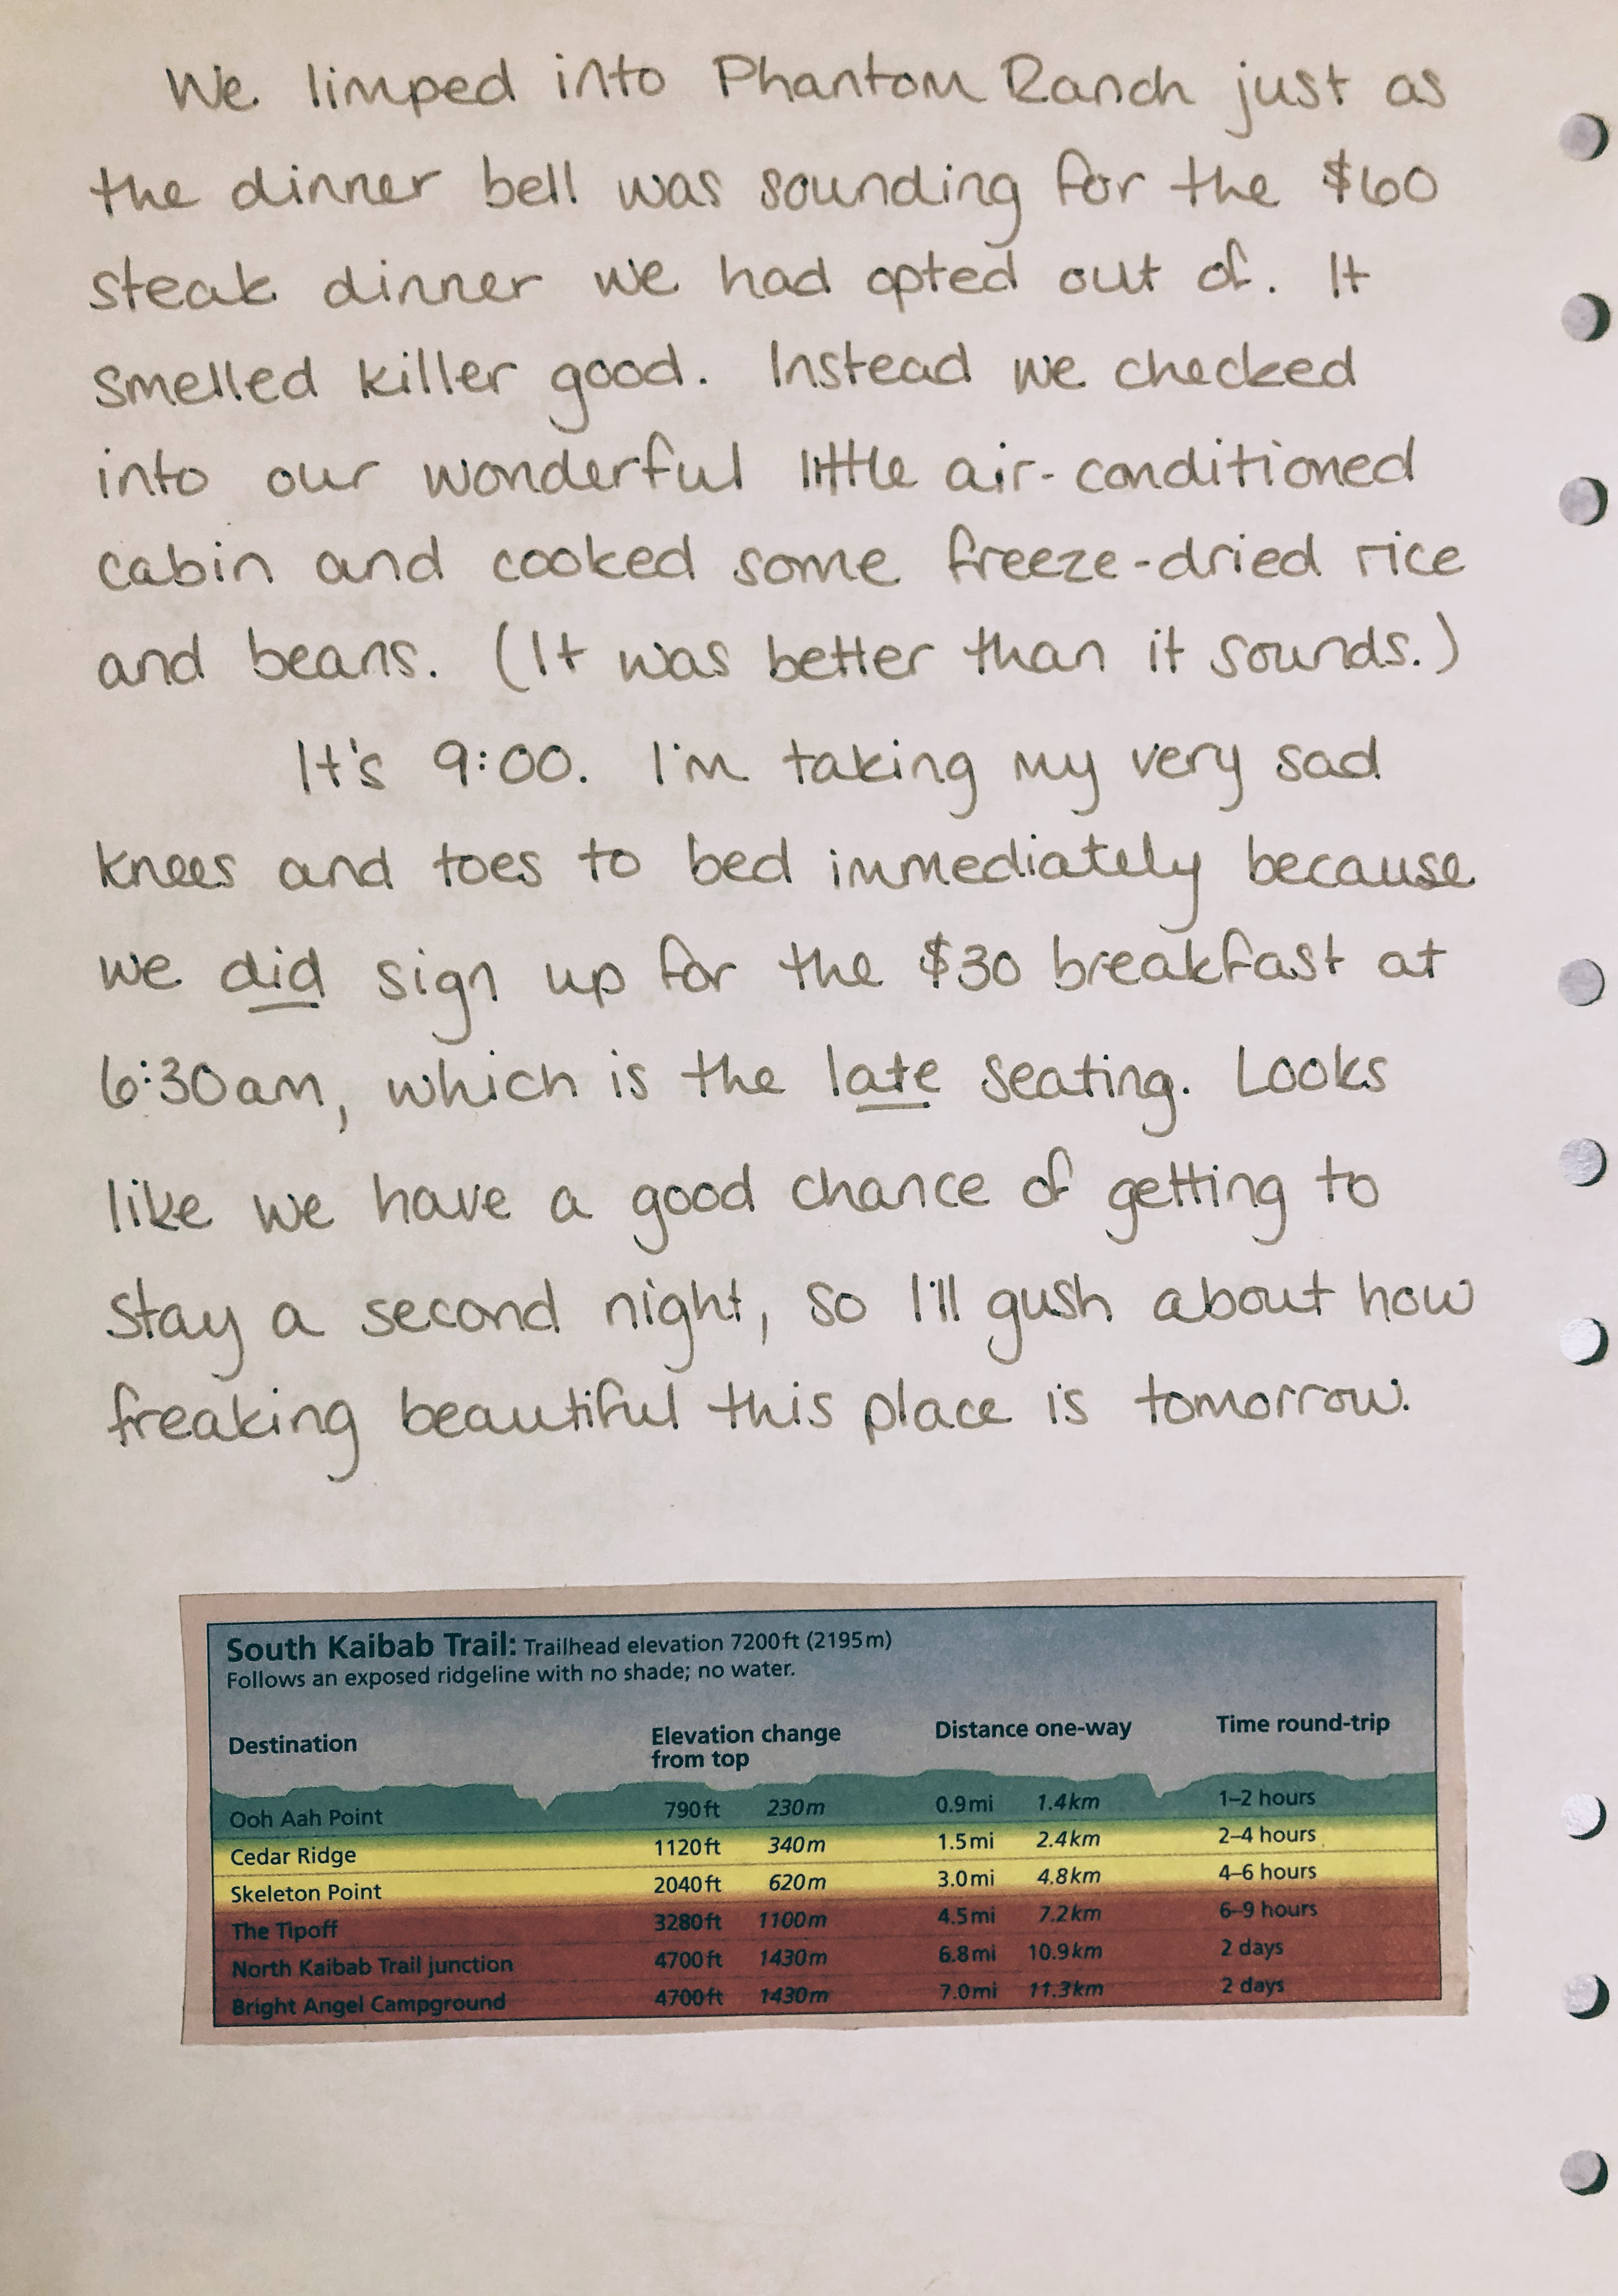 We limped into Phantom Ranch just as
the dinner bell was sounding for the $60
steak dinner we had opted out of. It
smelled killer good. Instead we checked
into our wonderful little air-conditioned
cabin and cooked some freeze-dried rice
and beans. (It was better than it sounds.)
It's 9:00. I'm taking my very sad
knees and toes to bed immediately because
we did sign up for the $30 breakfast at
6:30am, which is the late seating. Looks
like we have a good chance of getting to
stay a second night, so I'll gush about how
freaking beautiful this place is tomorrow.
South Kaibab Trail: Trailhead elevation 7200ft (2195m)
Follows an exposed ridgeline with no shade; no water.
Destination Elevation change Distance one-way Time round-trip
from top
Ooh Aah Point 790ft 230m 0.9mi 1.4km 1–2 hours
Cedar Ridge 1120ft 340m 1.5mi 2.4km 2–4 hours
Skeleton Point 2040ft 620m 3.0mi 4.8km 4–6 hours
The Tipoff 3280ft 1100m 4.5mi 7.2km 6–9 hours
North Kaibab Trail junction 4700ft 1430m 6.8mi 10.9km 2 days
Bright Angel Campground 4700ft 1430m 7.0mi 11.3km 2 days